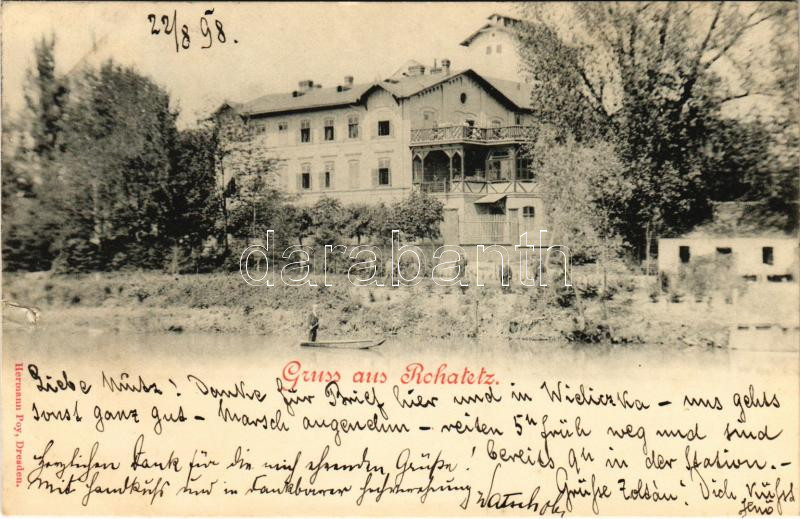 22/8 98.
darabanth
Gruss aus Rohatetz.
Hermann Poy, Dresden.
Liebe Mütz! Danke für Brief hier und in Wieliczka – uns gehts
sonst ganz gut – Marsch angenehm – reiten 5h früh weg und sind
bereits 9h in der Station. –
herzlichen Dank für die mich ehrenden Grüße!
Mit Handkuss und in dankbarer Hochverehrung
Grüße Zoltán! Dich küsst
Jenö